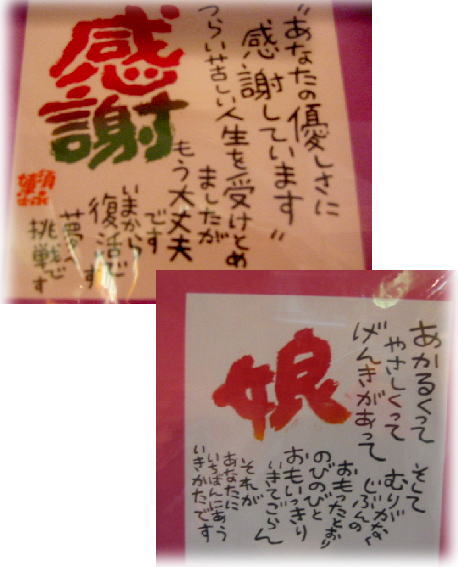 感謝
"あなたの優しさに
感謝しています"
つらい苦しい人生を受けとめ
ましたが
もう大丈夫
です
いまから
復活で
す
夢へ
挑戦です
娘
あかるくって
やさしくって
げんきがあって
そして
むりがなく
じぶんの
おもったとおり
のびのびと
おもいっきり
いきてごらん
それが
あなたに
いちばんにあう
いきかたです